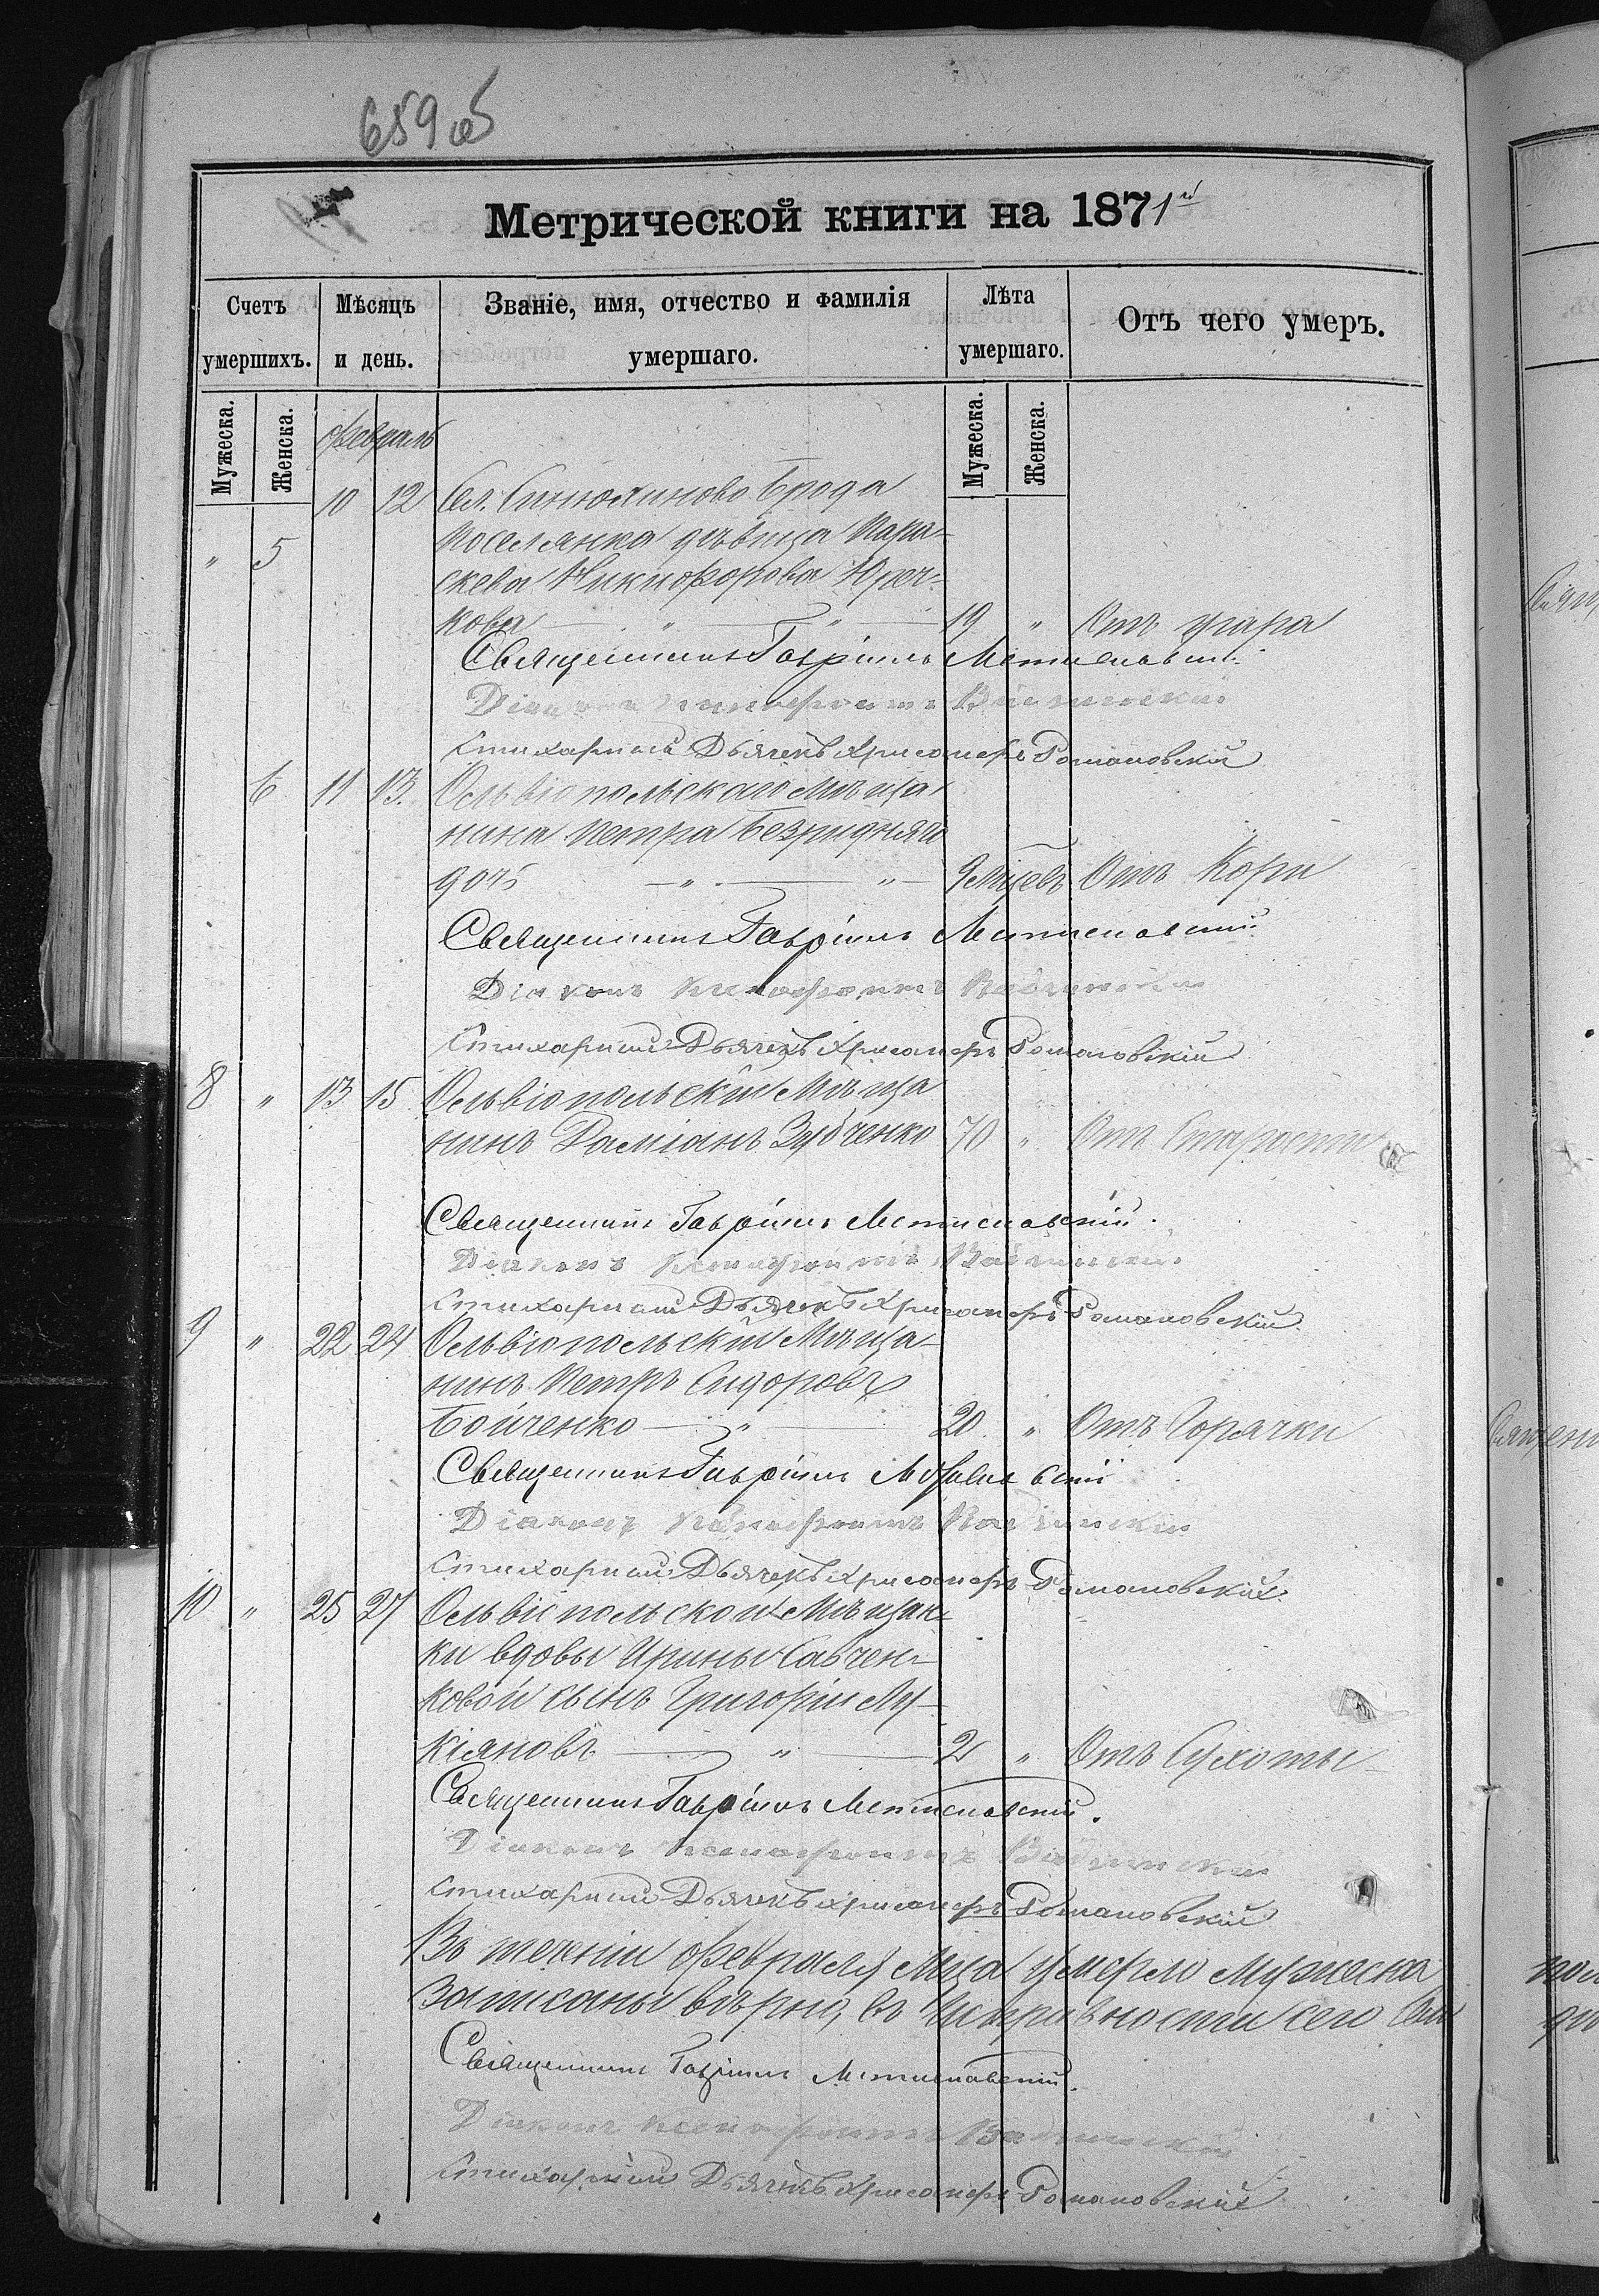 659 об
Метрической книги на 1871й
Счетъ умершихъ.
Мѣсяцъ и день.
Званіе, имя, отчество и фамилія умершаго.
Лѣта умершаго.
Отъ чего умеръ.
Мужеска.
Женска.
Мужеска.
Женска.
Февраль
10 12 Сел. Синюхиново Брода
" 5 поселянка дѣвица Пара-
скева Никифорова Юрч-
кова — " — " — 19 " Отъ угара
Священникъ Гавріилъ Мстиславскій
Діаконъ Ксенофонтъ
Стихарный Дьячекъ Хрисанфъ Романовскій
6 11 13. Ольвіопольскаго Мѣща-
нина Петра Безридняго
дочь — " — " — 9 Мѣцевъ Отъ Кори
Священникъ Гавріилъ Мстиславскій
Діаконъ Ксенофонтъ
Стихарный Дьячекъ Хрисанфъ Романовскій
8 " 13 15 Ольвіопольскій Мѣща
нинъ Даміанъ Зубченко 70 " Отъ Старости
Священникъ Гавріилъ Мстиславскій.
Діаконъ Ксенофонтъ
Стихарный Дьячекъ Хрисанфъ Романовскій
9 " 22 24 Ольвіопольскій Мѣща-
нинъ Петръ Сидоровъ
Бойченко — " — 20. " Отъ Горячки
Священникъ Гавріилъ Мстиславскій
Діаконъ Ксенофонтъ
Стихарный Дьячекъ Хрисанфъ Романовскій
10 " 25 27 Ольвіопольской Мѣщан-
ки вдовы Ирины Савчен-
ковой сынъ Григорій Лу-
кіяновъ — " — 2 " Отъ Сухоты
Священникъ Гавріилъ Мстиславскій.
Діаконъ Ксенофонтъ
Стихарный Дьячекъ Хрисанфъ Романовскій
Въ теченіи Февраля Мца умерло мужеска
записаны вѣрно, въ сего
Священникъ Гавріилъ Мстиславскій.
Діаконъ Ксенофонтъ
Стихарный Дьячекъ Хрисанфъ Романовскій